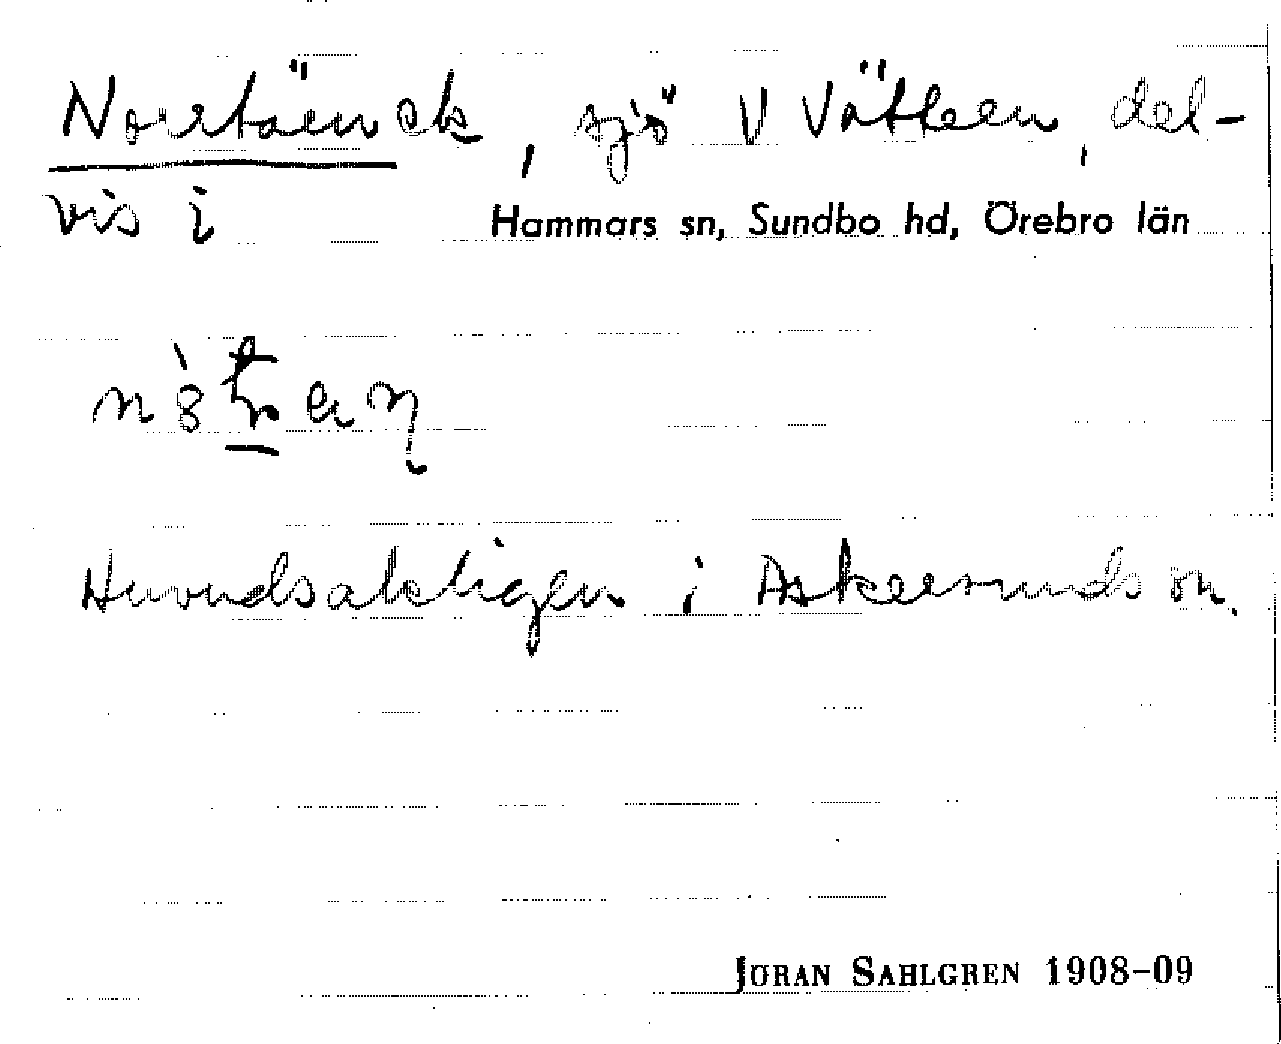 Norrtäen ek, sjö V Vättern, del-
vis i Hammars sn, Sundbo hd, Örebro län
Huvudsakligen i Askersunds sn.
JÖRAN SAHLGREN 1908-09